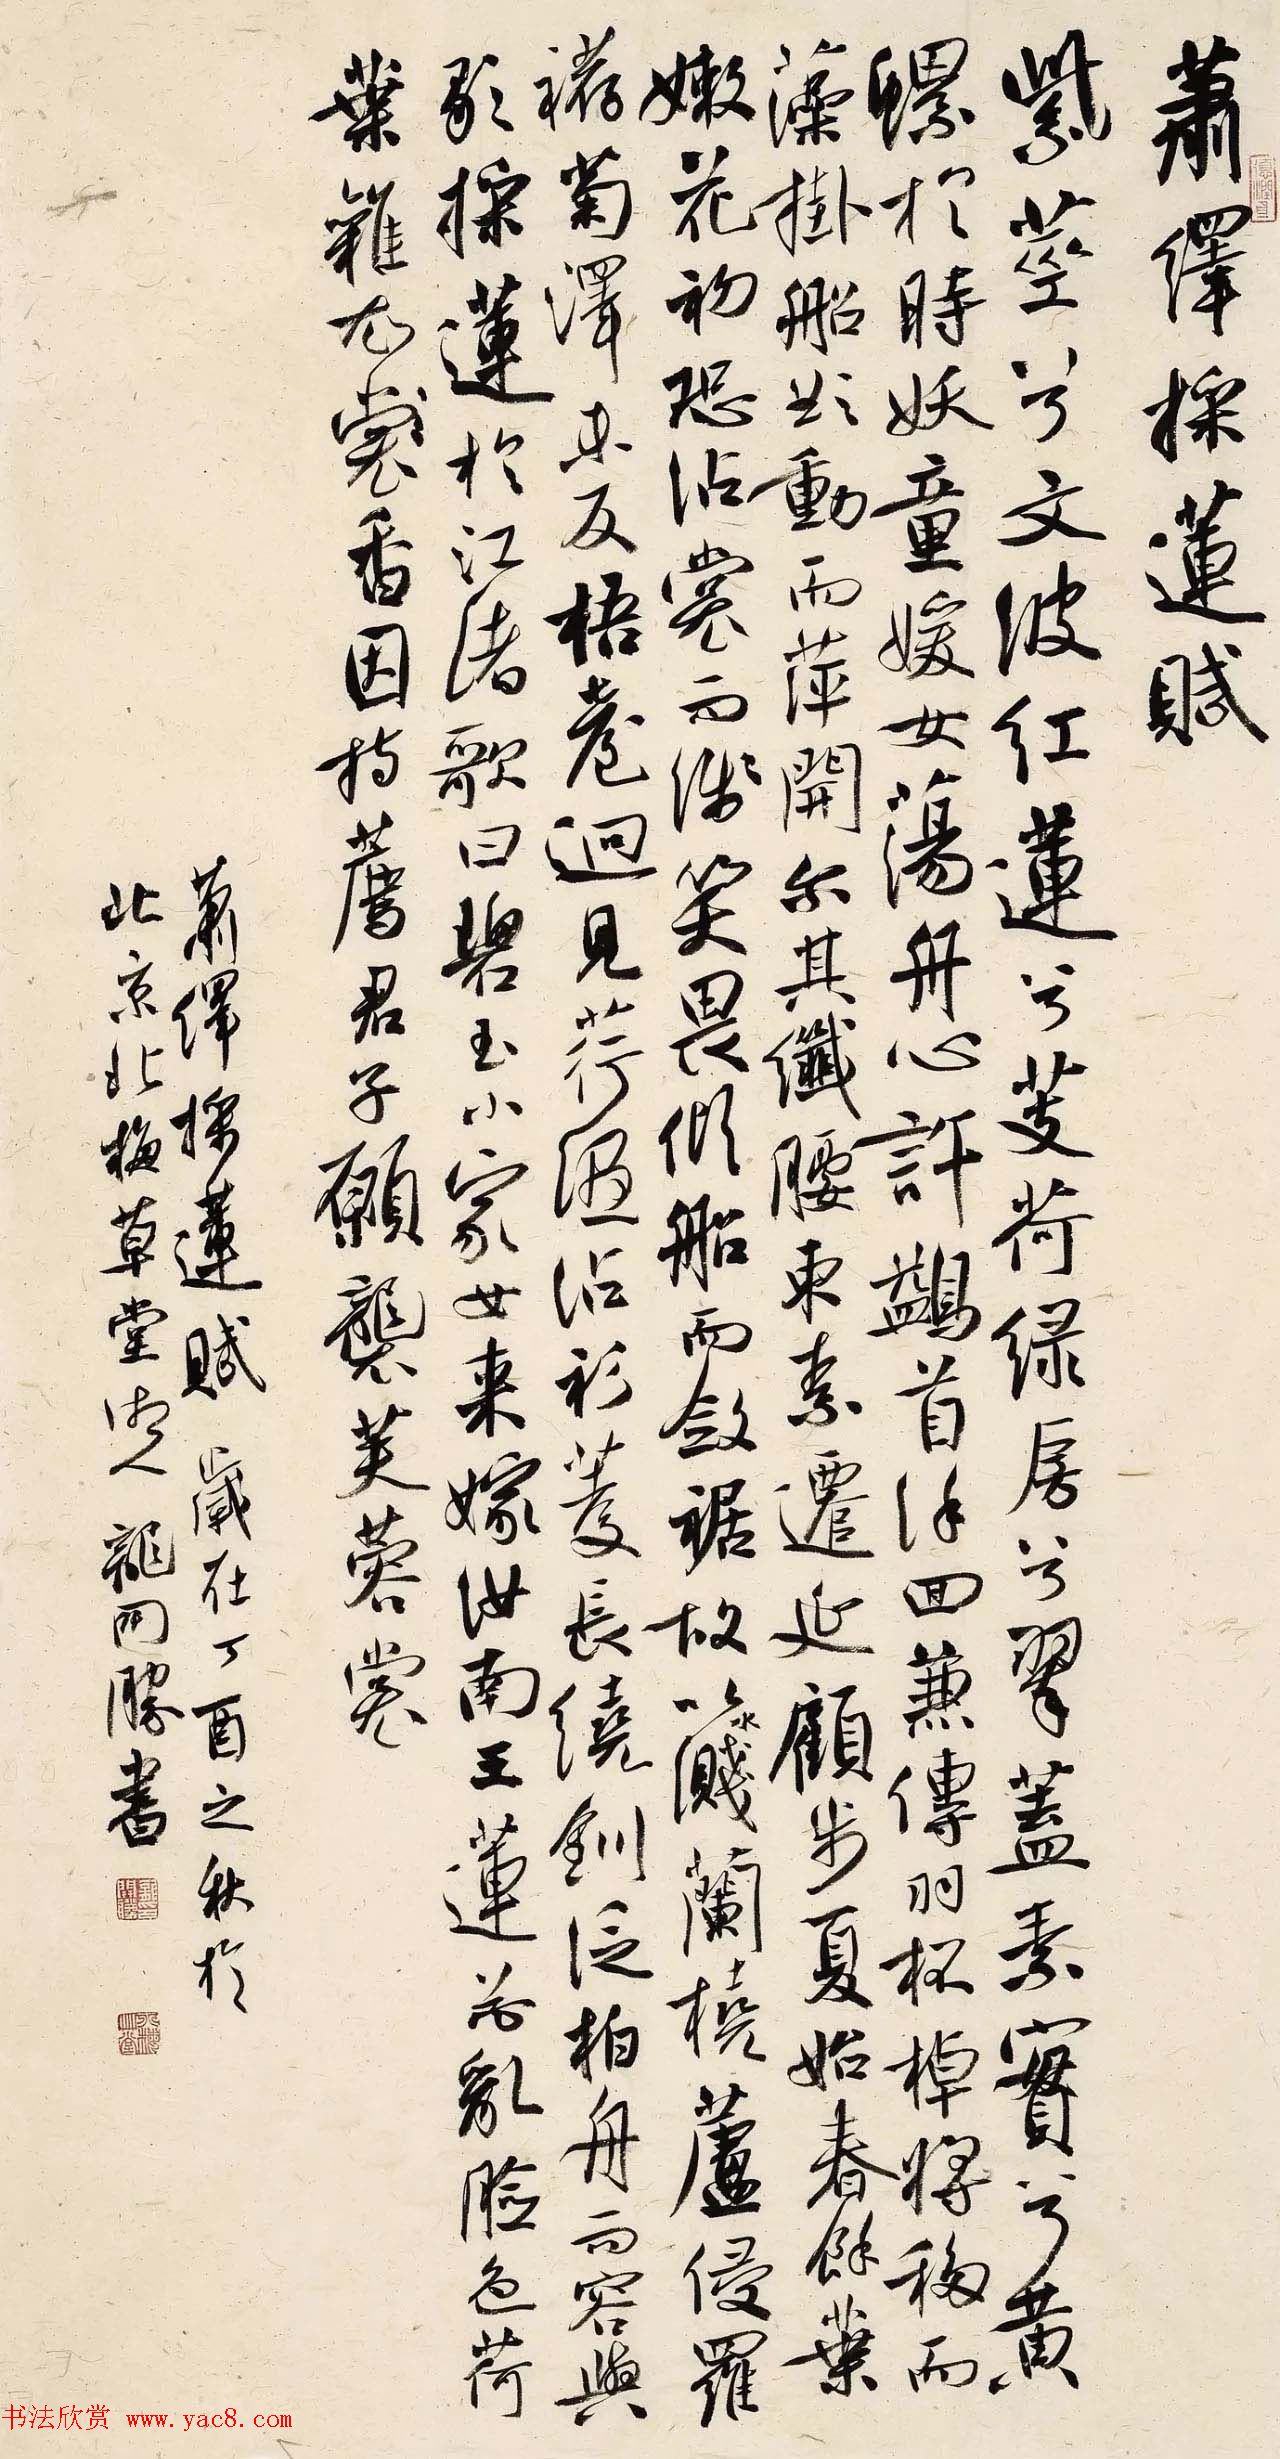 蕭繹採蓮賦
紫莖兮文波红蓮兮芰荷绿房兮翠蓋素實兮黄
螺於時妖童媛女蕩舟心許鷁首徐回兼傳羽杯棹將移而
藻掛船欲動而萍開尔其纖腰束素遷延顧步夏始春餘葉
嫩花初恐沾裳而淺笑畏傾船而斂裾故以濺蘭橈蘆侵羅
䙖菊澤未反梧臺迥見荇濕沾衫菱長繞釧泛柏舟而容與
歌採蓮於江渚歌曰碧玉小家女来嫁汝南王蓮花亂臉色荷
葉雜衣裳香因持薦君子願襲芙蓉裳
蕭繹採蓮賦 歲在丁酉之秋於
北京北梅草堂 龍開勝書
书法欣赏 www.yac8.com